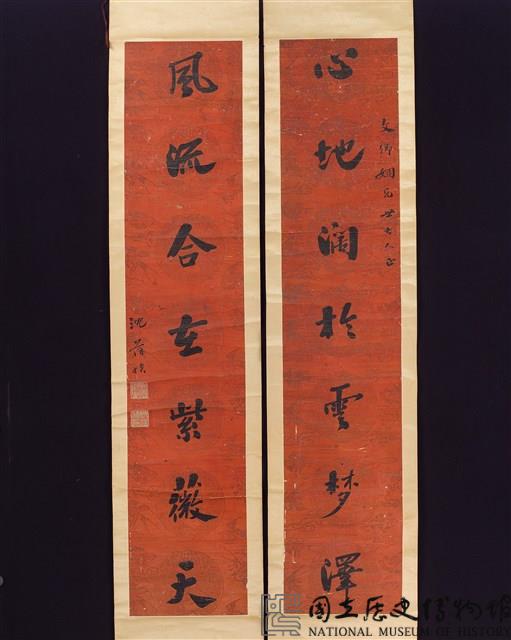 文卿姻兄世大人正
心地濶於雲梦澤
風流合在紫薇天
沈葆楨
國立歷史博物館
NATIONAL MUSEUM OF HISTORY